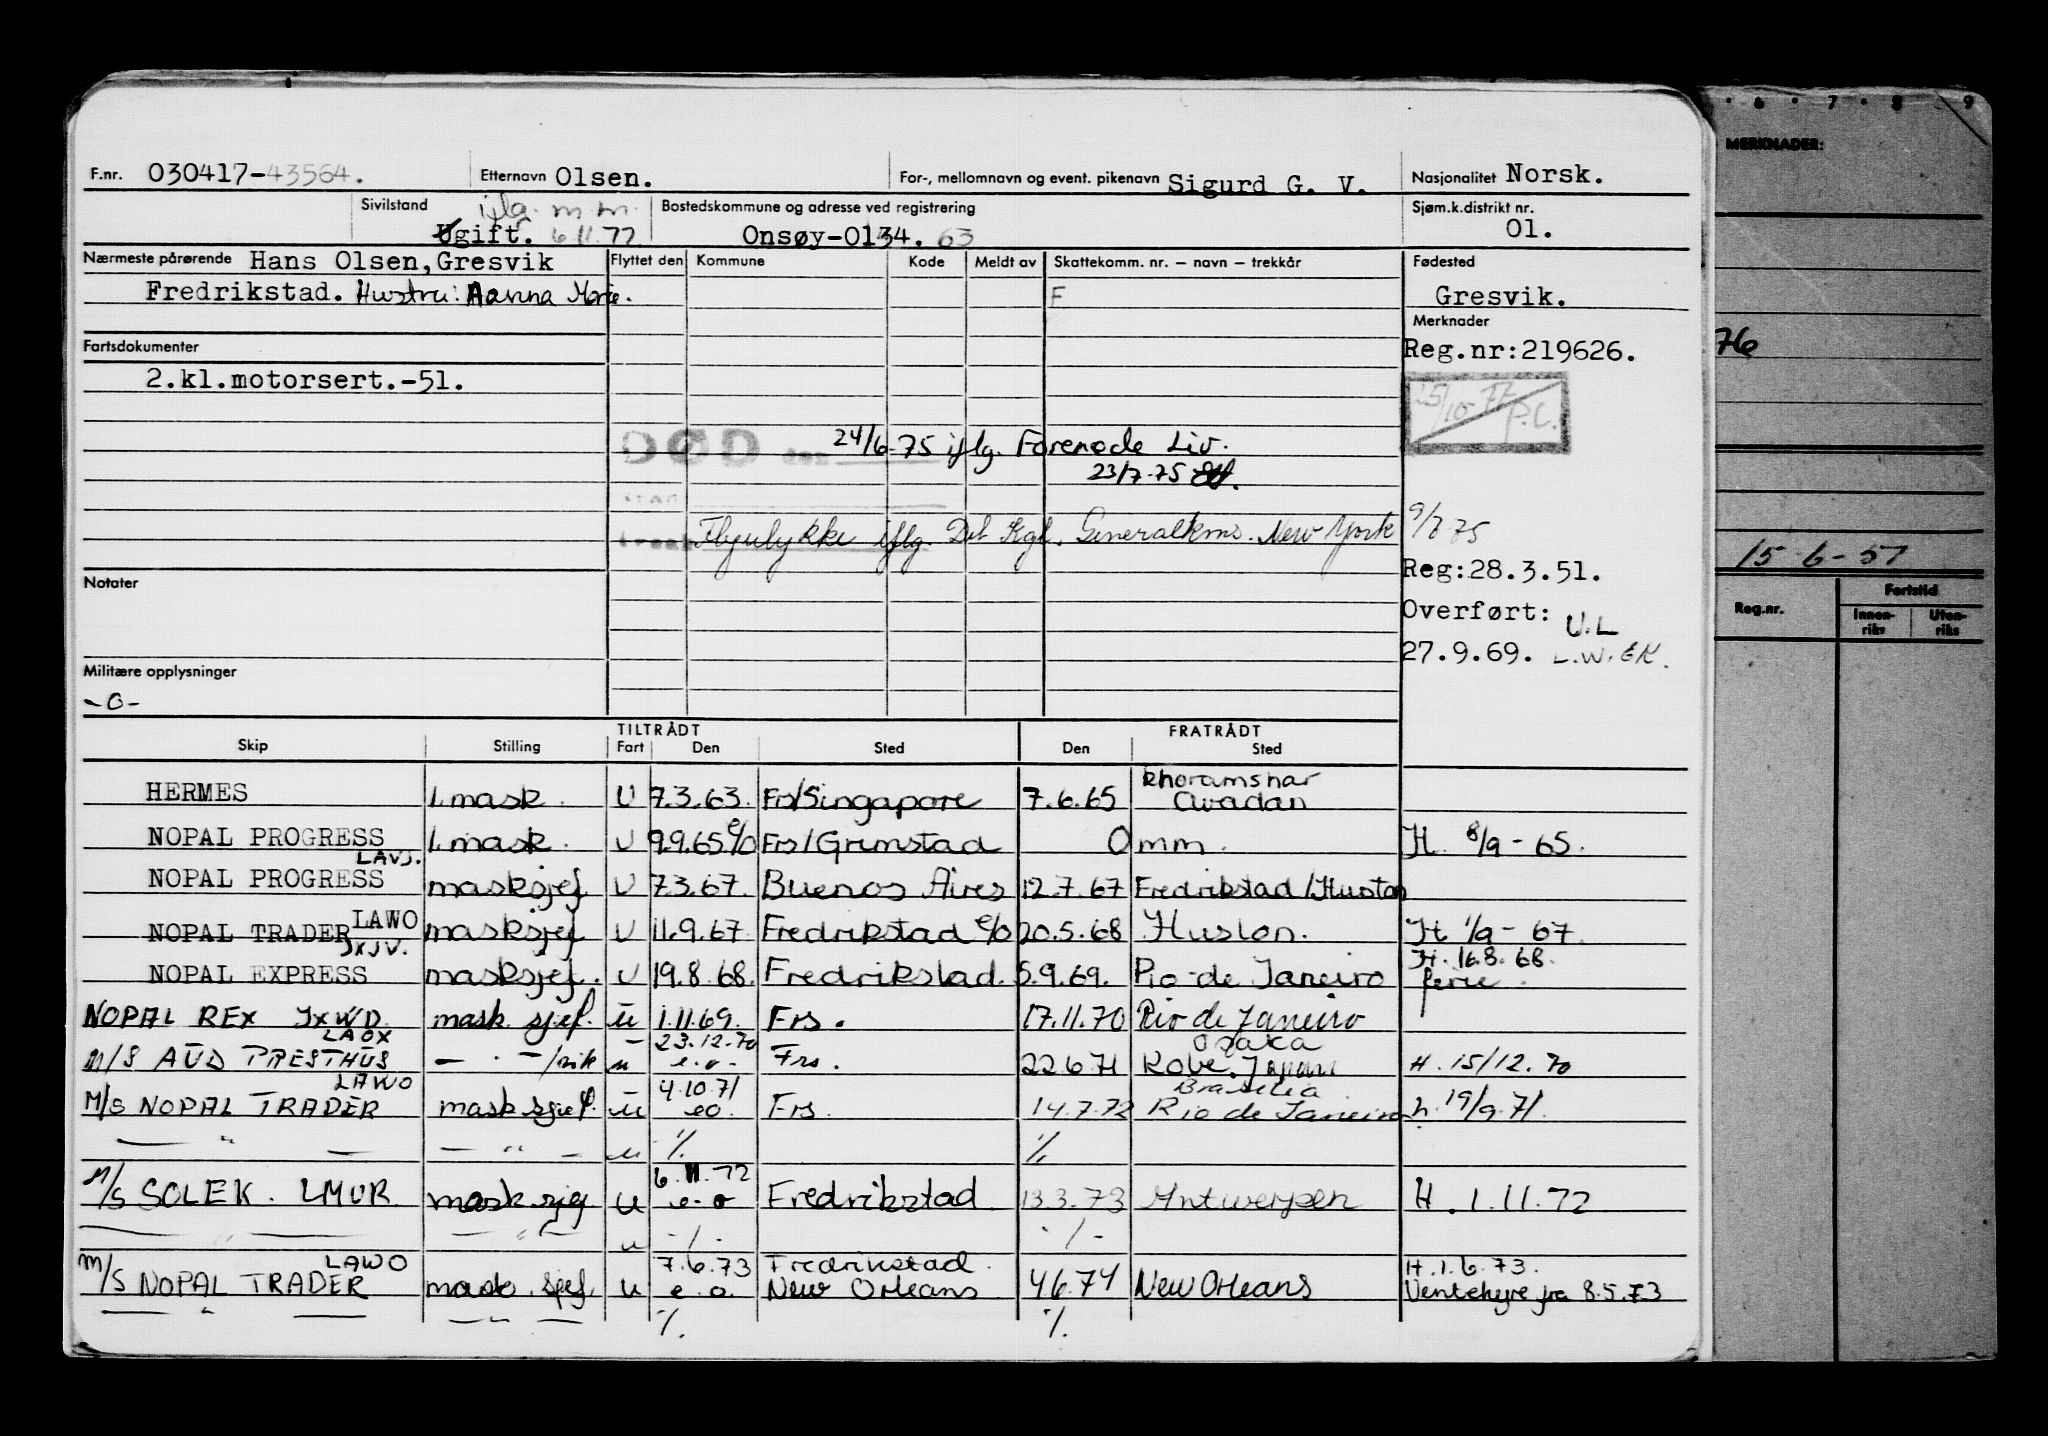 F.nr. 030417-43564. Etternavn Olsen. For-, mellomnavn og event. pikenavn Sigurd G. V. Nasjonalitet Norsk.
Sivilstand iflg. m.m. Bostedskommune og adresse ved registrering Sjøm.k.distrikt nr.
Ugift. 6.11.72 Onsøy-0134. 63 01.
Nærmeste pårørende Hans Olsen, Gresvik Flyttet den Kommune Kode Meldt av Skattekomm. nr. — navn — trekkår Fødested
Fredrikstad. Hustru: Marie. F Gresvik.
Merknader
Fartsdokumenter Reg.nr:219626.
2.kl.motorsert.-51.
25/10-77 P.L.
DØD den 24/6-75 iflg. Forenede Liv.
23/7-75
Flyulykke iflg. Det Kgl. Generalkons. New York 9/7 75
Reg:28.3.51.
Notater
Overført: U.L
27.9.69. L.W. EK.
Militære opplysninger
-o-
TILTRÅDT FRATRÅDT
Skip Stilling Fart Den Sted Den Sted
HERMES 1. mask. U 7.3.63. Frs/Singapore 7.6.65 Khoramshar Awadan
NOPAL PROGRESS 1. mask. U 9.9.65 e/o Frs/Grimstad 0 mm. H. 8/9-65.
NOPAL PROGRESS LAVJ. masksjef U 7.3.67. Buenos Aires 12.7.67 Fredrikstad/Huston
NOPAL TRADER LAWO masksjef U 11.9.67. Fredrikstad e/o 20.5.68 Huston. H 1/9-67.
NOPAL EXPRESS JXJV. masksjef. U 19.8.68. Fredrikstad. 5.9.69. Rio-de Janeiro H. 16.8.68. ferie.
NOPAL REX JXWD. mask. sjef. u 1.11.69. Frs. 17.11.70 Rio de Janeiro
M/S AUD PRESTHUS LAOX — . — u 23.12.70 e.o- Frs. 22.6.71 Osaka Kobe. Japan H. 15/12.70
M/S NOPAL TRADER LAWO mask sjef. u 4.10.71 eo. Frs. 14.7.72 Brasilia Rio de Janeiro h. 19/9.71.
— " — — " — u % %
M/S SOLEK. LMUR mask.sjef u 6.11.72 e-o Fredrikstad 13.3.73 Antwerpen H. 1.11.72
— — — " — u -/- -/-
M/S NOPAL TRADER LAWO mask. sjef. u 7.6.73 e.o. Fredrikstad. New Orleans 4.6.74 New Orleans H.1.6.73. Ventehyre fra 8.5.73
— " — — " — % %
6 7 8 9
MERKNADER:
76
15-6-51
Reg.nr. Fartstid
Innen-riks Uten-riks